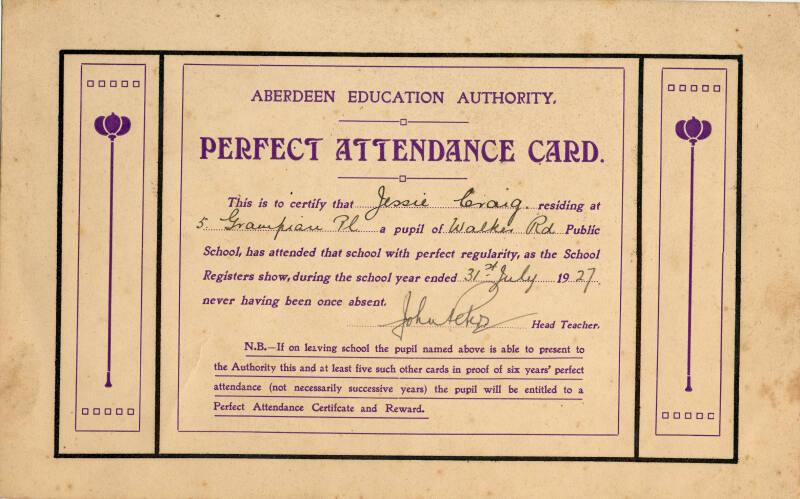 ABERDEEN EDUCATION AUTHORITY.
PERFECT ATTENDANCE CARD.
This is to certify that Jessie Craig. residing at
5. Grampian Pl a pupil of Walker Rd Public
School, has attended that school with perfect regularity, as the School
Registers show, during the school year ended 31st July 1927,
never having been once absent.
John Head Teacher.
N.B.—If on leaving school the pupil named above is able to present to
the Authority this and at least five such other cards in proof of six years' perfect
attendance (not necessarily successive years) the pupil will be entitled to a
Perfect Attendance Certifcate and Reward.